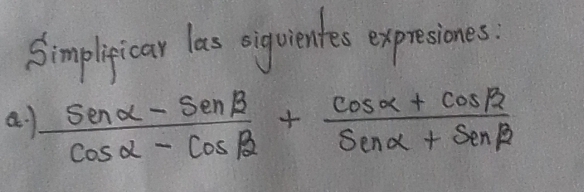 Simplificar las siguientes expresiones:
a.) (Sen α - Sen β)/(Cos α - Cos β) + (Cos α + Cos β)/(Sen α + Sen β)